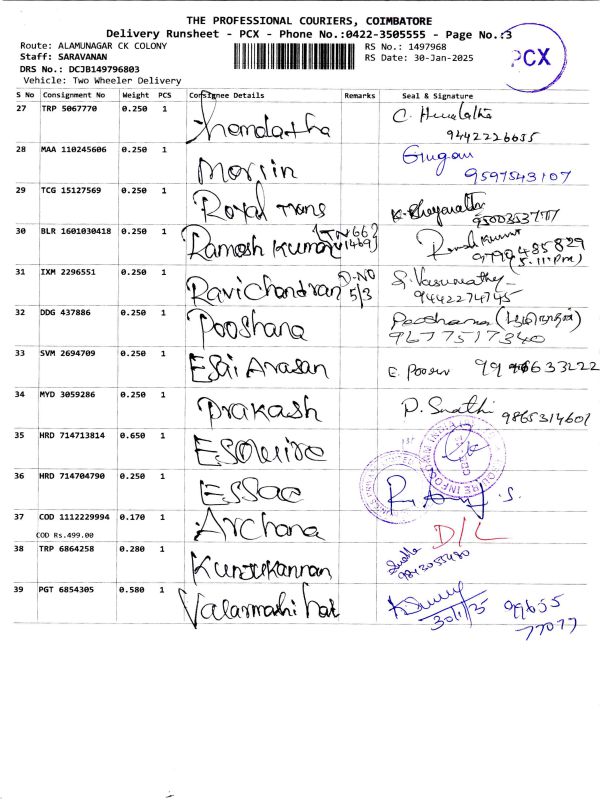 THE PROFESSIONAL COURIERS, COIMBATORE
Delivery Runsheet - PCX - Phone No.:0422-3505555 - Page No.:3
Route: ALAMUNAGAR CK COLONY
Staff: SARAVANAN
DRS No.: DCJB149796803
Vehicle: Two Wheeler Delivery
RS No.: 1497968
RS Date: 30-Jan-2025
PCX
S No Consignment No Weight PCS Consignee Details Remarks Seal & Signature
27 TRP 5067770 0.250 1 9442226635
28 MAA 110245606 0.250 1 Gugan
9597543107
29 TCG 15127569 0.250 1 Royal Trans
30 BLR 1601030418 0.250 1 Ramesh Kumar Ramesh Kumar
9790485829
(5.11 pm)
31 IXM 2296551 0.250 1 Ravichandran D-NO 5/3 S. Vasumathy
9442274745
32 DDG 437886 0.250 1 Pooshana Pooshana
9677517340
33 SVM 2694709 0.250 1 Esai Arasan
34 MYD 3059286 0.250 1 Prakash 9865314601
35 HRD 714713814 0.650 1 Esquire
36 HRD 714704790 0.250 1 Essae
37 COD 1112229994 0.170 1 Archana D/L
COD Rs.499.00
38 TRP 6864258 0.280 1 9843055480
39 PGT 6854305 0.580 1 30/1/25
99655
77077